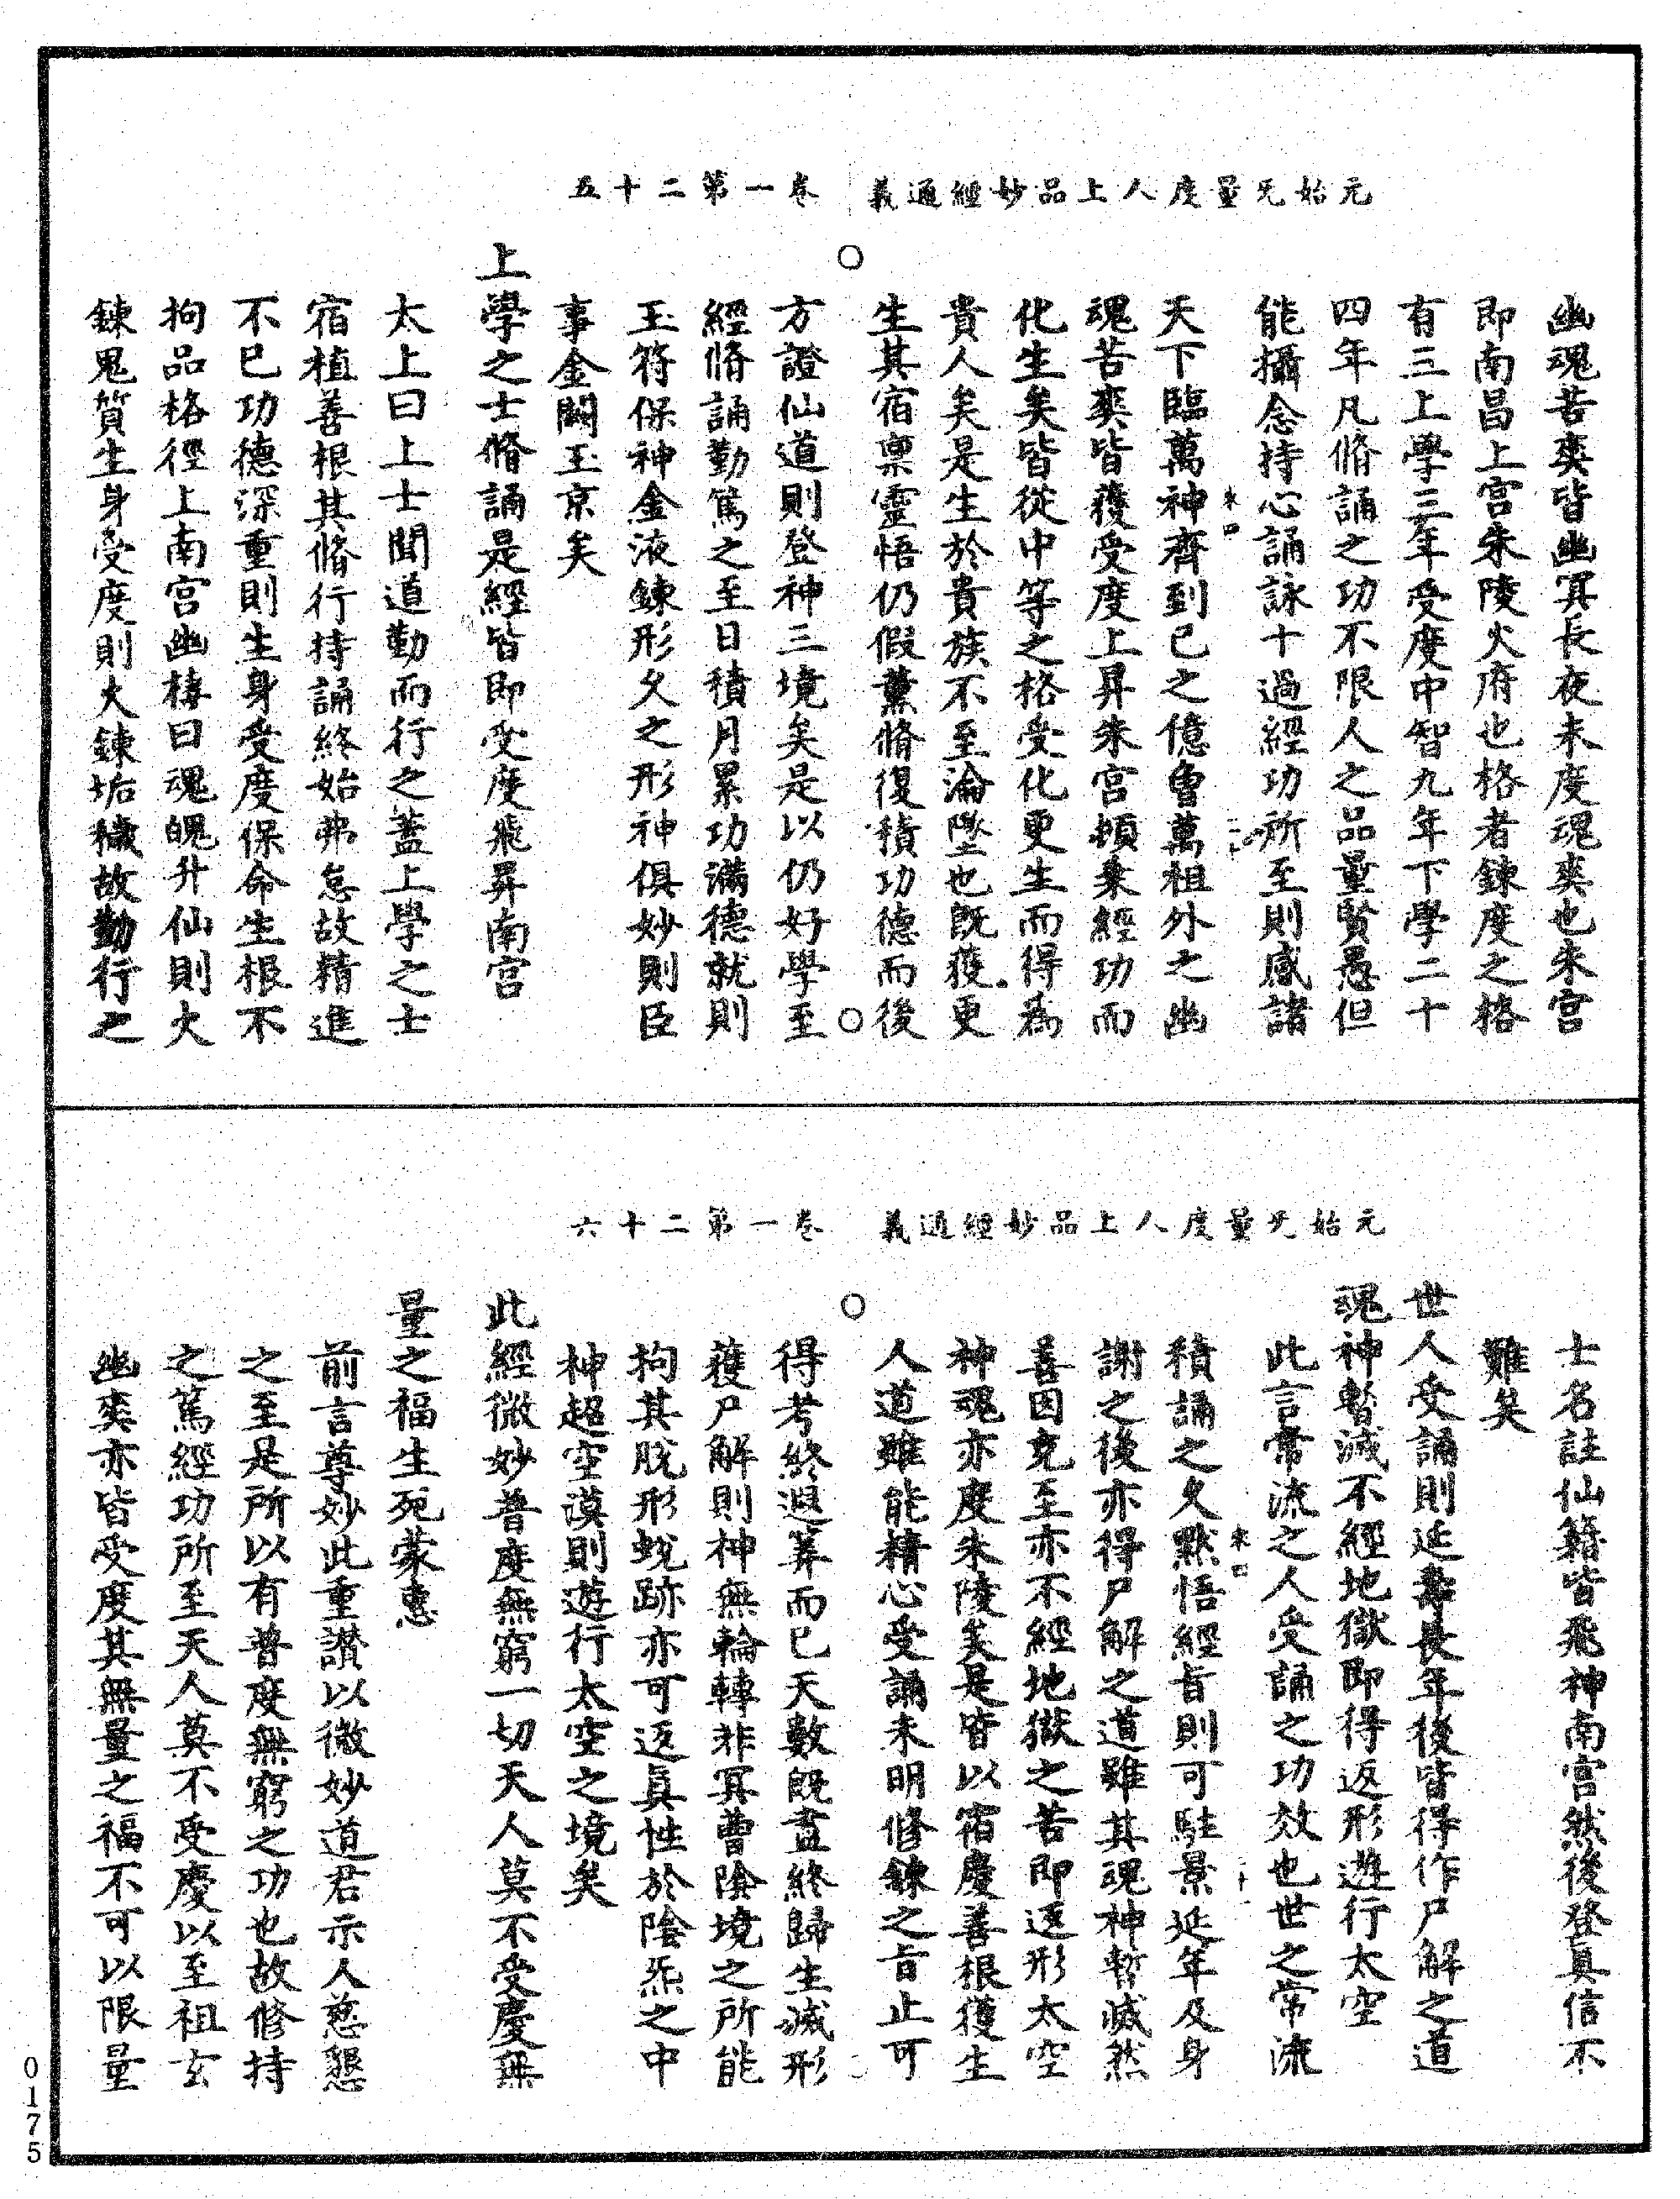 元始无量度人上品妙經通義　卷一第二十五
幽魂苦爽皆幽冥長夜未度魂爽也朱宮
即南昌上宮朱陵火府也格者鍊度之格
有三上學三年受度中智九年下學二十
四年凡脩誦之功不限人之品量賢愚但
能攝念持心誦詠十過經功所至則感諸
天下臨萬神齊到已之億曾萬祖外之幽
魂苦爽皆獲受度上昇朱宮頓乗經功而
化生矣皆從中等之格受化更生而得為
貴人矣是生於貴族不至淪墜也既獲更
生其宿稟靈悟仍假薰脩復積功德而後
方證仙道則登神三境矣是以仍好學至
經脩誦勤篤之至日積月累功滿德就則
玉符保神金液鍊形久之形神俱妙則臣
事金闕玉京矣
上學之士脩誦是經皆即受度飛昇南宮
太上曰上士聞道勤而行之蓋上學之士
宿植善根其脩行持誦終始弗怠故精進
不已功德深重則生身受度保命生根不
拘品格徑上南宮幽構曰魂魄升仙則火
鍊鬼質生身受度則火鍊垢穢故勤行之
元始无量度人上品妙經通義　卷一第二十六
士名註仙籍皆飛神南宮然後登真信不
難矣
世人受誦則延壽長年後皆得作尸解之道
魂神暫滅不經地獄即得返形遊行太空
此言常流之人受誦之功效也世之常流
積誦之久黙悟經旨則可駐景延年及身
謝之後亦得尸解之道雖其魂神暫滅然
善因克至亦不經地獄之苦即返形太空
神魂亦度朱陵矣是皆以宿慶善根獲生
人道雖能精心受誦未明修鍊之旨止可
得考終遐筭而已天數既盡終歸生滅形
獲尸解則神無輪轉非冥曹陰境之所能
拘其脫形蛻跡亦可返真性於陰炁之中
神超空漠則遊行太空之境矣
此經微妙普度無窮一切天人莫不受慶無
量之福生死蒙惠
前言尊妙此重讃以微妙道君示人慈懇
之至是所以有普度無窮之功也故修持
之篤經功所至天人莫不受慶以至祖玄
幽爽亦皆受度其無量之福不可以限量
0175